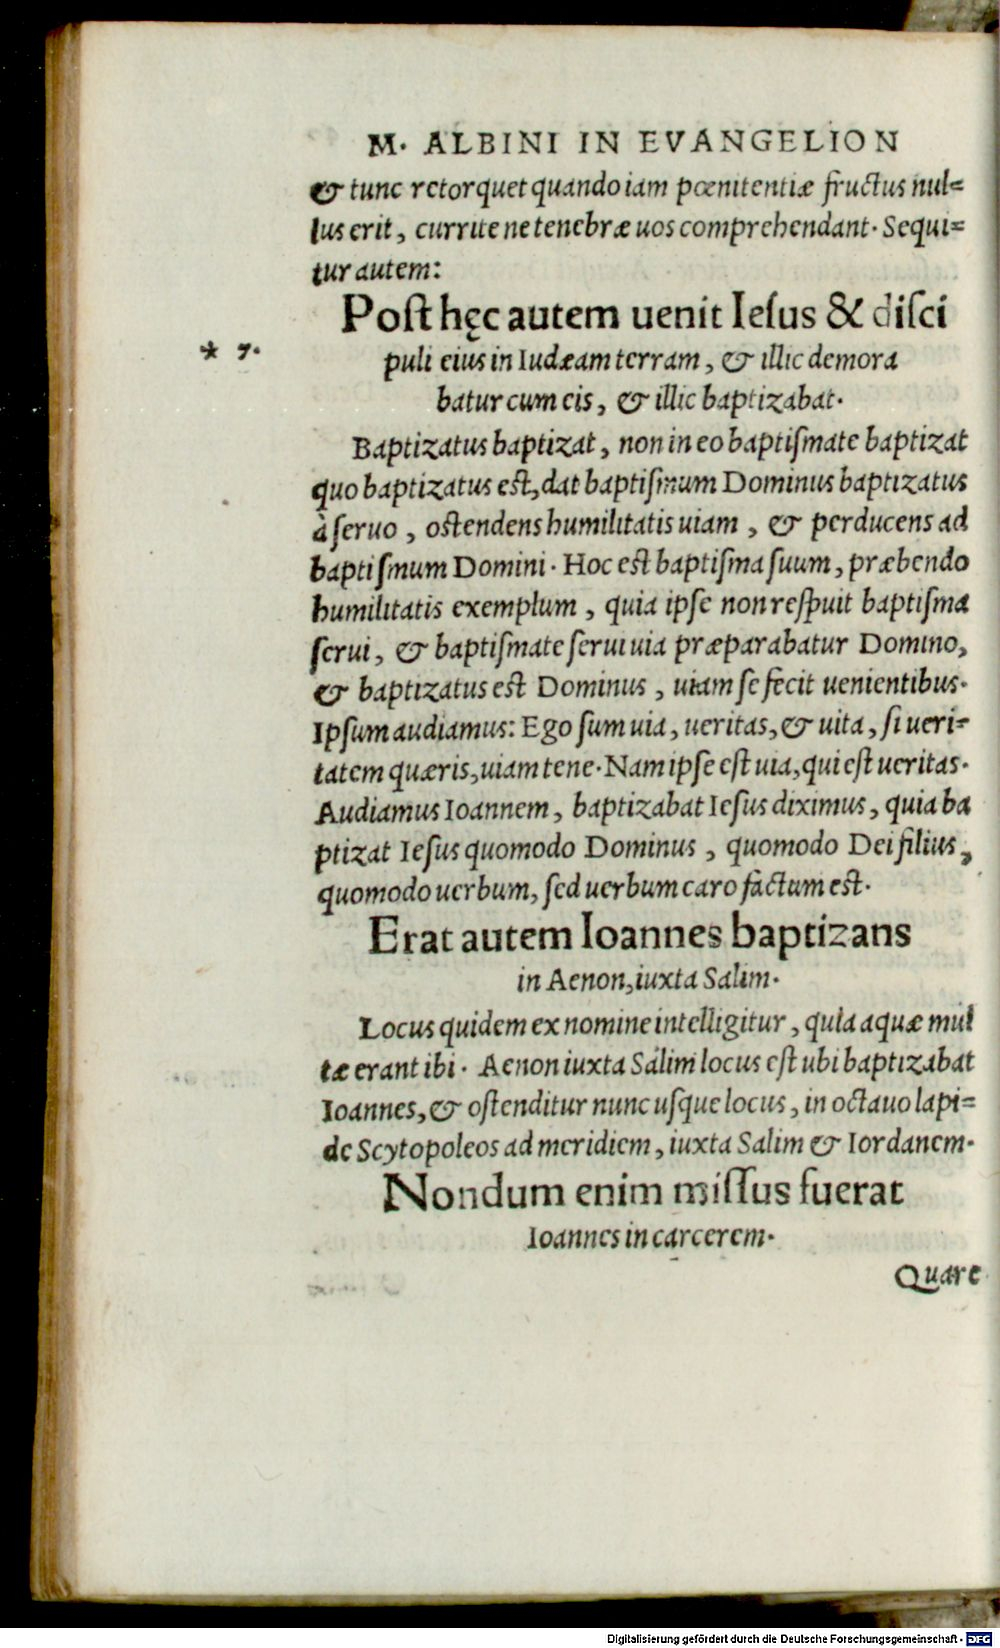 M. ALBINI IN EVANGELION
& tunc retorquet quando iam pœnitentiæ fructus nul=
lus erit, currite ne tenebræ uos comprehendant. Sequi=
tur autem:
Poſt hęc autem uenit Ieſus & diſci
* 7.
puli eius in Iudæam terram, & illic demora
batur cum eis, & illic baptizabat.
Baptizatus baptizat, non in eo baptiſmate baptizat
quo baptizatus eſt, dat baptiſmum Dominus baptizatus
à ſeruo, oſtendens humilitatis uiam, & perducens ad
baptiſmum Domini. Hoc eſt baptiſma ſuum, præbendo
humilitatis exemplum, quia ipſe non reſpuit baptiſma
ſerui, & baptiſmate ſerui uia præparabatur Domino,
& baptizatus eſt Dominus, uiam ſe fecit uenientibus.
Ipſum audiamus: Ego ſum uia, ueritas, & uita, ſi ueri=
tatem quæris, uiam tene. Nam ipſe eſt uia, qui eſt ueritas.
Audiamus Ioannem, baptizabat Ieſus diximus, quia ba
ptizat Ieſus quomodo Dominus, quomodo Dei filius,
quomodo uerbum, ſed uerbum caro factum eſt.
Erat autem Ioannes baptizans
in Aenon, iuxta Salim.
Locus quidem ex nomine intelligitur, quia aquæ mul
tæ erant ibi. Aenon iuxta Salim locus eſt ubi baptizabat
Ioannes, & oſtenditur nunc uſque locus, in octauo lapi=
de Scytopoleos ad meridiem, iuxta Salim & Iordanem.
Nondum enim miſſus fuerat
Ioannes in carcerem.
Quare
Digitalisierung gefördert durch die Deutsche Forschungsgemeinschaft - DFG